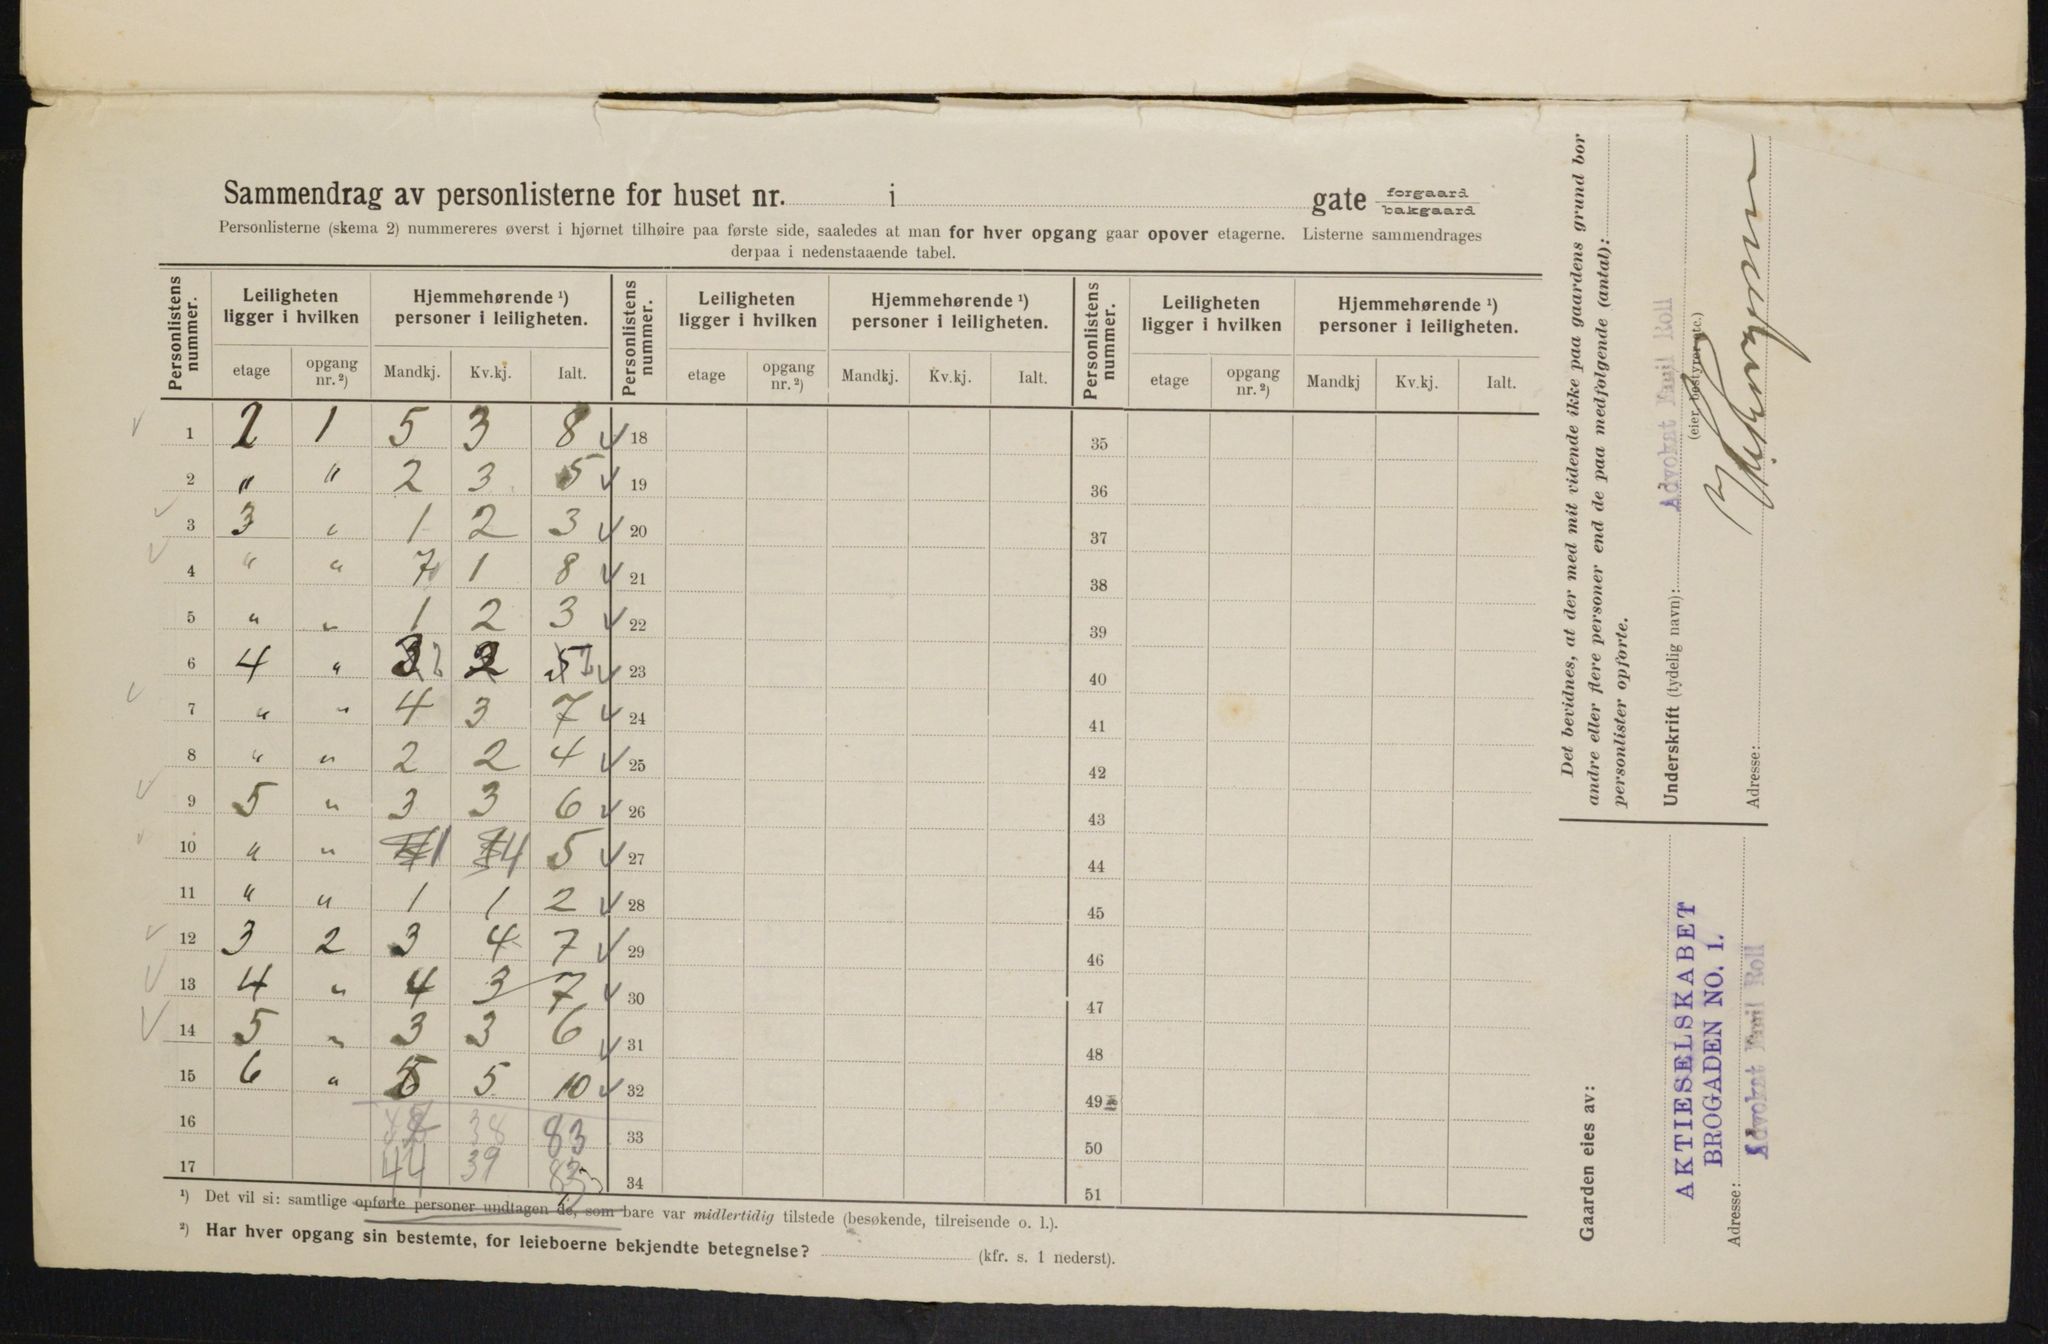 Sammendrag av personlisterne for huset nr. i gate forgaard bakgaard
Personlisterne (skema 2) nummereres øverst i hjørnet tilhøire paa første side, saaledes at man for hver opgang gaar opover etagerne. Listerne sammendrages
derpaa i nedenstaaende tabel.
Personlistens nummer. Leiligheten ligger i hvilken Hjemmehørende ¹) personer i leiligheten. Personlistens nummer. Leiligheten ligger i hvilken Hjemmehørende ¹) personer i leiligheten. Personlistens nummer. Leiligheten ligger i hvilken Hjemmehørende ¹) personer i leiligheten.
etage opgang nr. ²) Mandkj. Kv.kj. Ialt. etage opgang nr. ²) Mandkj. Kv.kj. Ialt. etage opgang nr. ²) Mandkj Kv.kj. Ialt.
1 2 1 5 3 8 18 35
2 " " 2 3 5 19 36
3 3 " 1 2 3 20 37
4 " " 7 1 8 21 38
5 " " 1 2 3 22 39
6 4 " 23 40
7 " " 4 3 7 24 41
8 " " 2 2 4 25 42
9 5 " 3 3 6 26 43
10 " " 1 4 5 27 44
11 " " 1 1 2 28 45
12 3 2 3 4 7 29 46
13 4 " 4 3 7 30 47
14 5 " 3 3 6 31 48
15 6 " 5 5 10 32 49
16 38 83 33 50
17 44 39 83 34 51
¹) Det vil si: samtlige opførte personer undtagen de, som bare var midlertidig tilstede (besøkende, tilreisende o. l.).
²) Har hver opgang sin bestemte, for leieboerne bekjendte betegnelse? (kfr. s. 1 nederst).
Det bevidnes, at der med mit vidende ikke paa gaardens grund bor
andre eller flere personer end de paa medfølgende (antal):
personlister opførte.
Underskrift (tydelig navn): Advokat Emil Roll
(eier, bestyrer etc.)
Adresse:
Gaarden eies av:
AKTIESELSKABET
BROGADEN NO. 1.
Adresse: Advokat Emil Roll